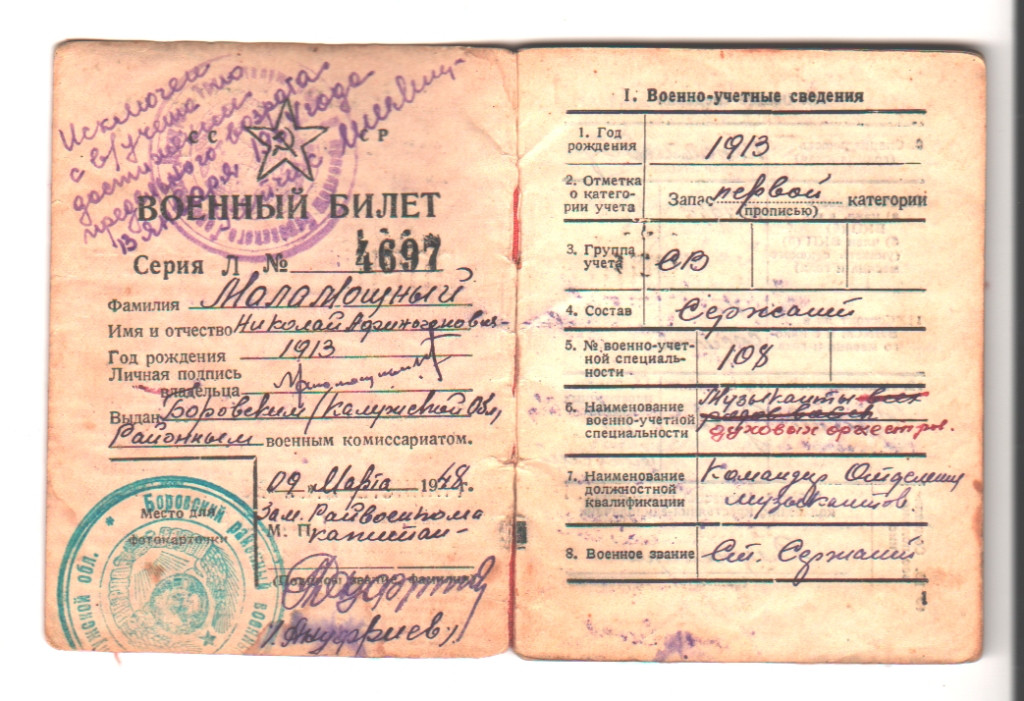 Исключен
с в/учета по
достижении
предельного возраста
13 января года
СС Р
ВОЕННЫЙ БИЛЕТ
Серия Л № 4697
Фамилия Маламощный
Имя и отчество Николай
Год рождения 1913
Личная подпись
владельца
Выдан Боровским (Калужской Обл)
Районным военным комиссариатом.
09 Марта 1948г.
Место для
фотокарточки
Зам. Райвоенкома
М. П. капитан
(Ануфриев)
Боровский районный
обл.
I. Военно-учетные сведения
1. Год
рождения
1913
2. Отметка
о катего-
рии учета
Запас первой категории
(прописью)
3. Группа
учета
СВ
4. Состав Сержант
5. № военно-учет-
ной специаль-
ности
108
6. Наименование
военно-учетной
специальности
Музыканты всех
родов войск
духовых оркестров.
7. Наименование
должностной
квалификации
Командир Отделения
музыкантов
8. Военное звание Ст. Сержант
1